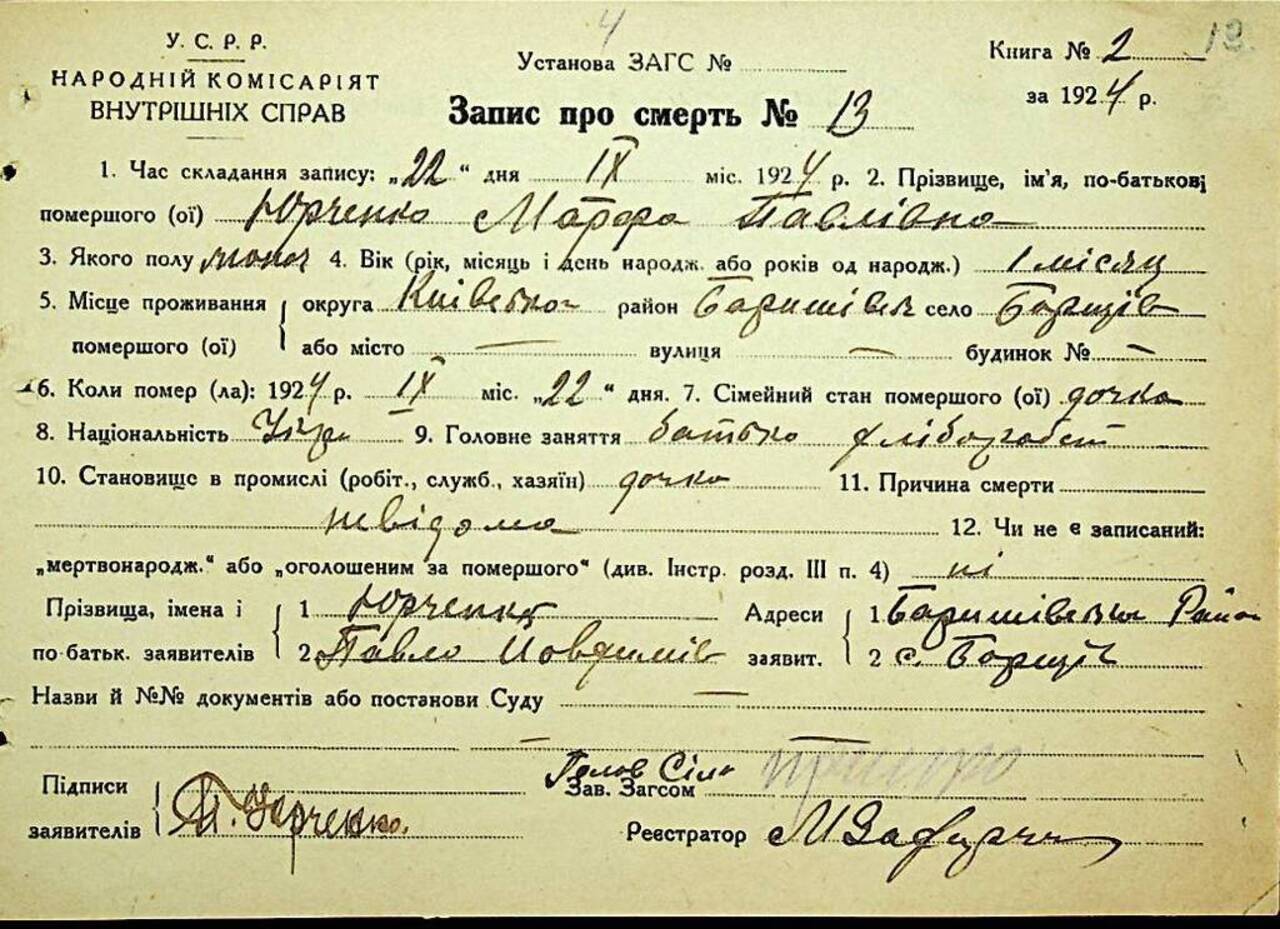 У. С. Р. Р.
НАРОДНІЙ КОМІСАРІЯТ
ВНУТРІШНІХ СПРАВ
4
Установа ЗАГС №
Запис про смерть № 13
13.
Книга № 2
за 1924 р.
1. Час складання запису: „22“ дня IX міс. 1924 р. 2. Прізвище, ім'я, по-батькові
помершого (ої) Юрченко Марфа Павлівна
3. Якого полу жіноч 4. Вік (рік, місяць і день народж. або років од народж.) 1 місяц
5. Місце проживання округа Київська район Баришівськ село Борщів
помершого (ої) або місто — вулиця — будинок № —
6. Коли помер (ла): 1924 р. IX міс. „22“ дня. 7. Сімейний стан помершого (ої) дочка
8. Національність Укр 9. Головне заняття батько хлібороб
10. Становище в промислі (робіт., служб., хазяїн) дочка 11. Причина смерти
невідома 12. Чи не є записаний:
„мертвонародж.“ або „оголошеним за помершого“ (див. Інстр. розд. III п. 4) ні
Прізвища, імена і 1 Юрченко Адреси 1 Баришівський Район
по батьк. заявителів 2 Павло заявит. 2 с. Борщів
Назви й №№ документів або постанови Суду —
— —
Підписи Голов Сіль
Зав. Загсом
заявителів П. Юрченко. Реєстратор М